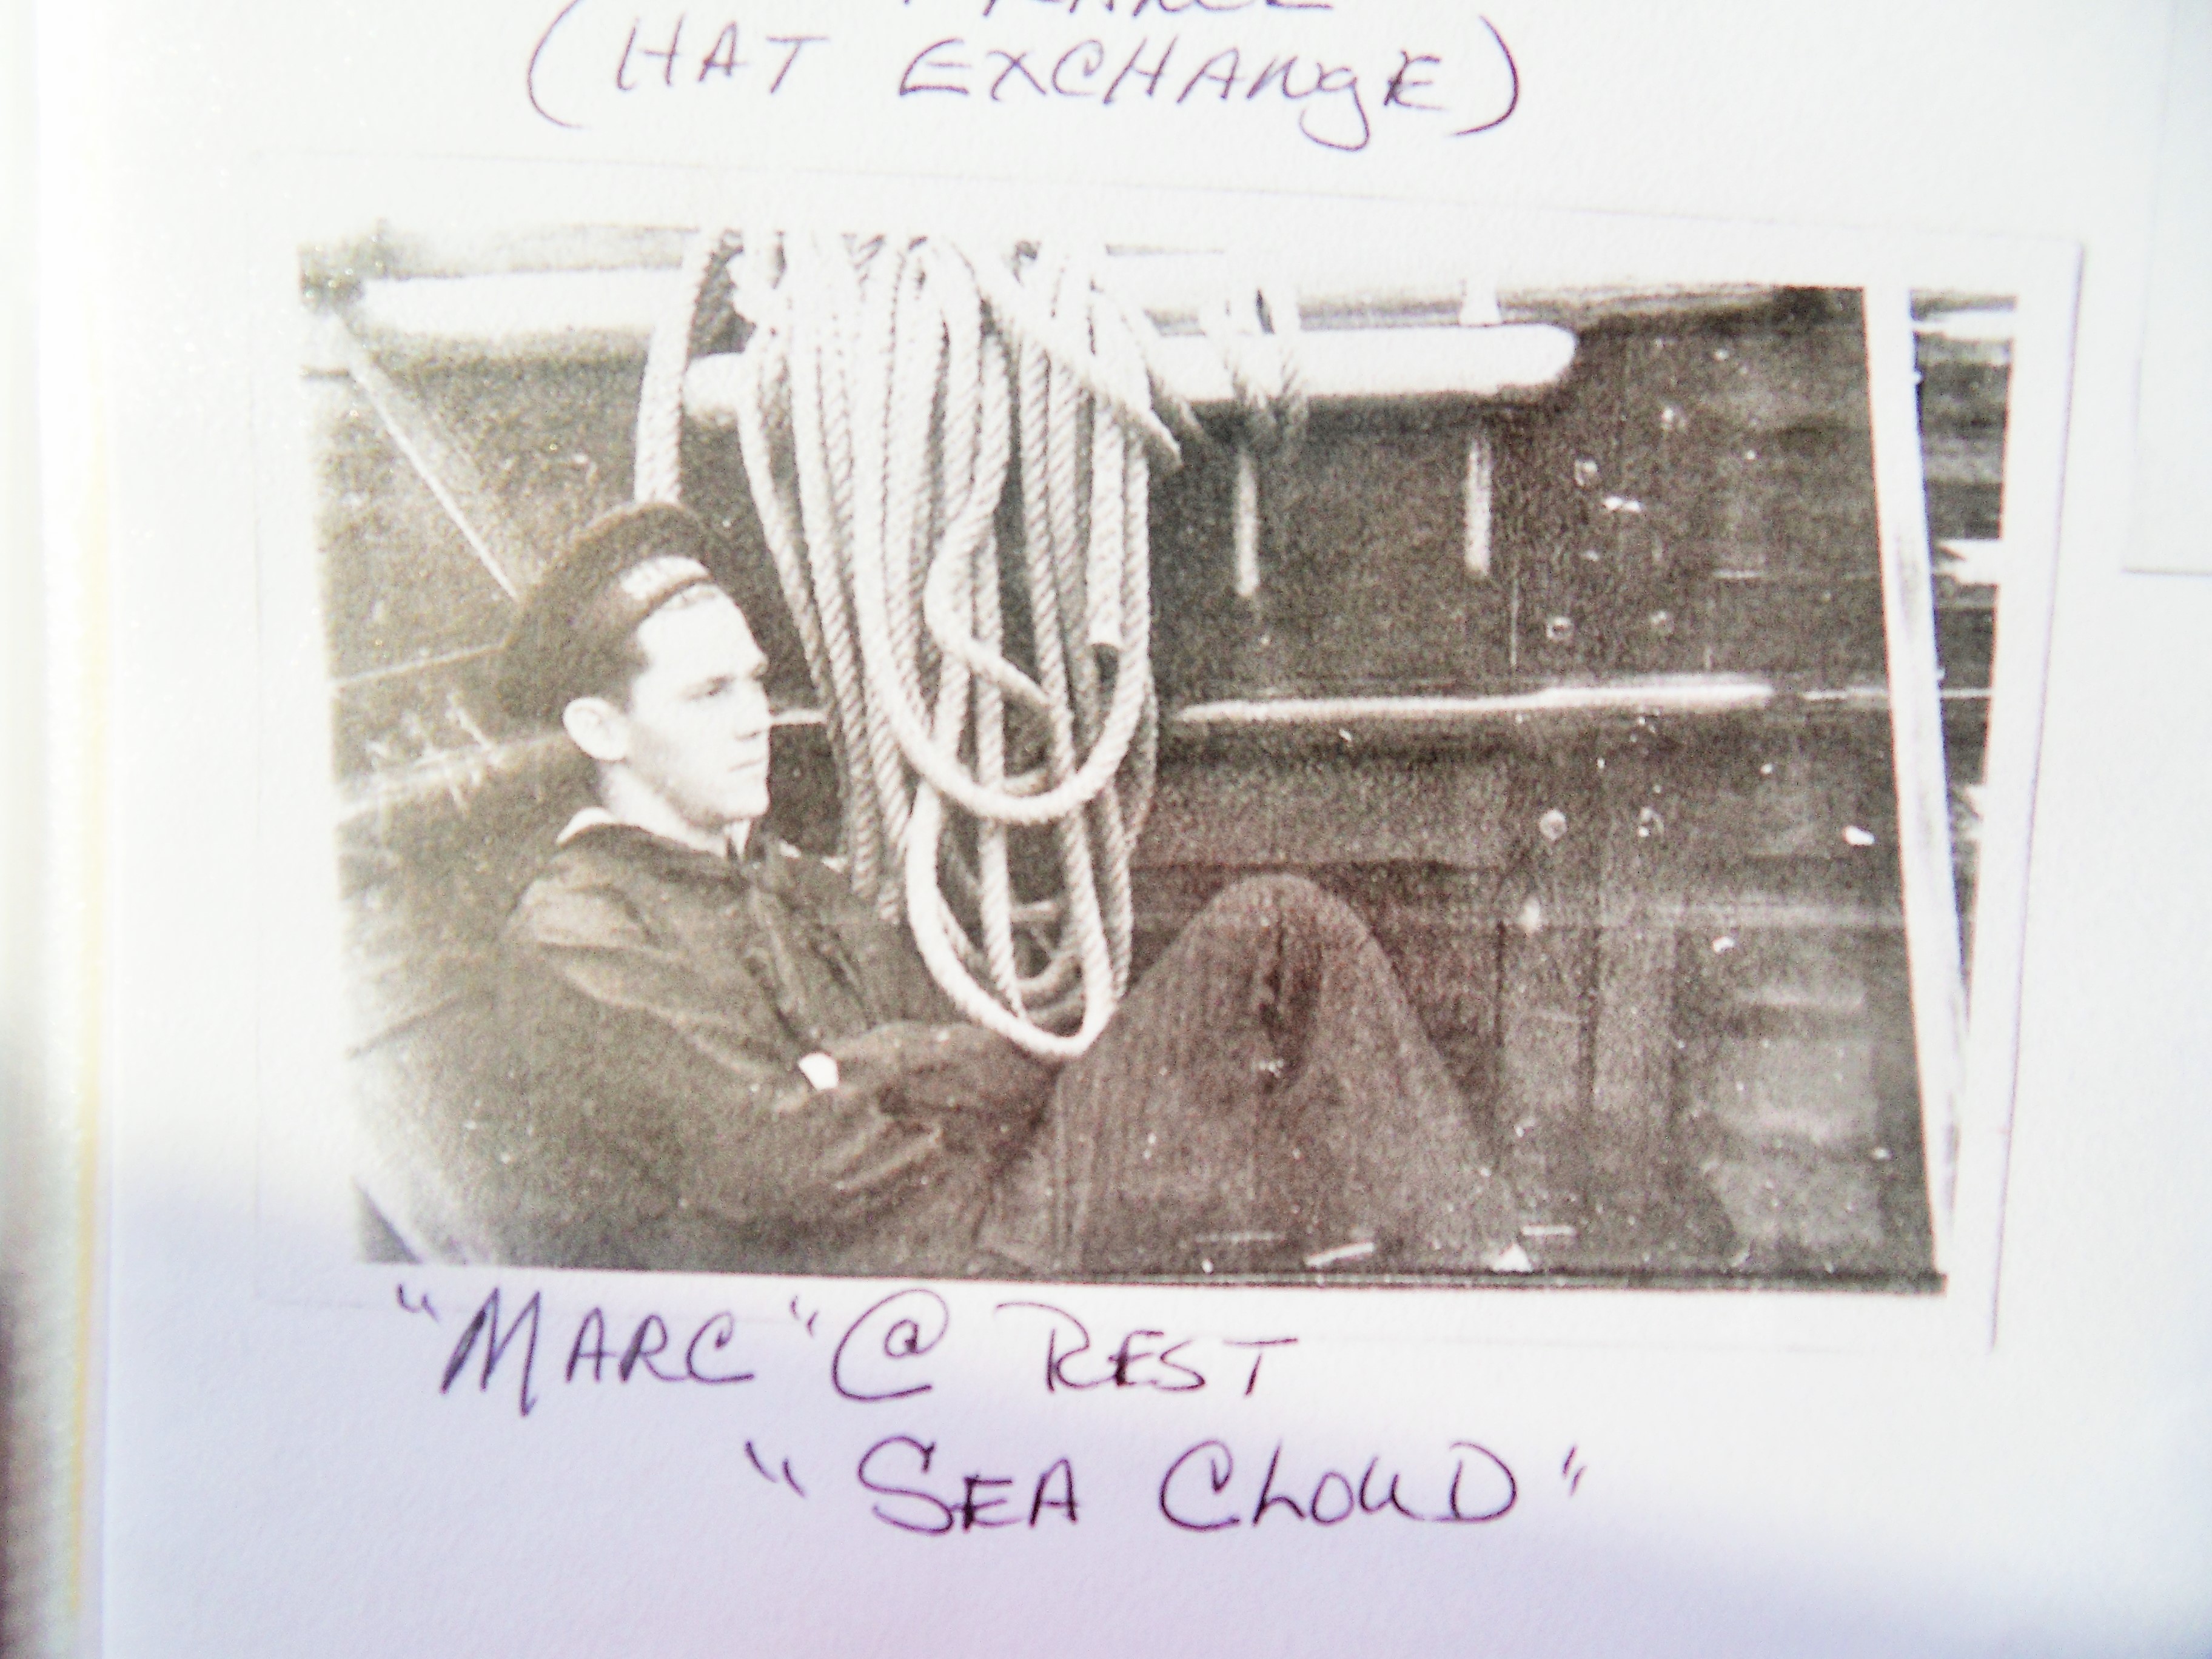 (HAT EXCHANgE)
"MARC" @ REST
"SEA CLOUD"